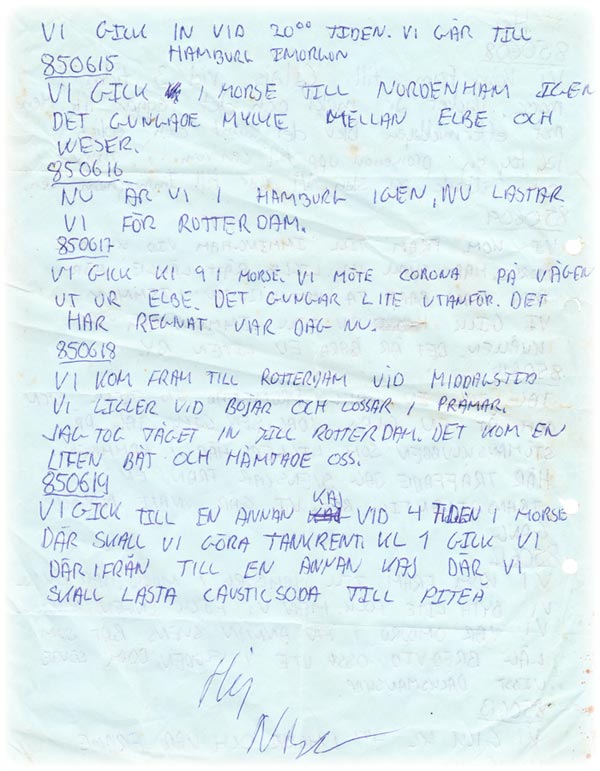 VI GICK IN VID 20⁰⁰ TIDEN. VI GÅR TILL
HAMBURG IMORGON
850615
VI GICK I MORSE TILL NORDENHAM IGEN
DET GUNGADE MYCKE MELLAN ELBE OCH
WESER.
850616
NU ÄR VI I HAMBURG IGEN, NU LASTAR
VI FÖR ROTTERDAM.
850617
VI GICK KL 9 I MORSE. VI MÖTE CORONA PÅ VÄGEN
UT UR ELBE. DET GUNGAR LITE UTANFÖR. DET
HAR REGNAT VAR DAG NU.
850618
VI KOM FRAM TILL ROTTERDAM VID MIDDAGSTID
VI LIGGER VID BOJAR OCH LOSSAR I PRÅMAR.
JAG TOG TÅGET IN TILL ROTTERDAM. DET KOM EN
LITEN BÅT OCH HÄMTADE OSS.
850619
VI GICK TILL EN ANNAN KAJ VID 4 TIDEN I MORSE
DÄR SKALL VI GÖRA TANKRENT. KL 1 GICK VI
DÄRIFRÅN TILL EN ANNAN KAJ DÄR VI
SKALL LASTA CAUSTICSODA TILL PITEÅ
Hej